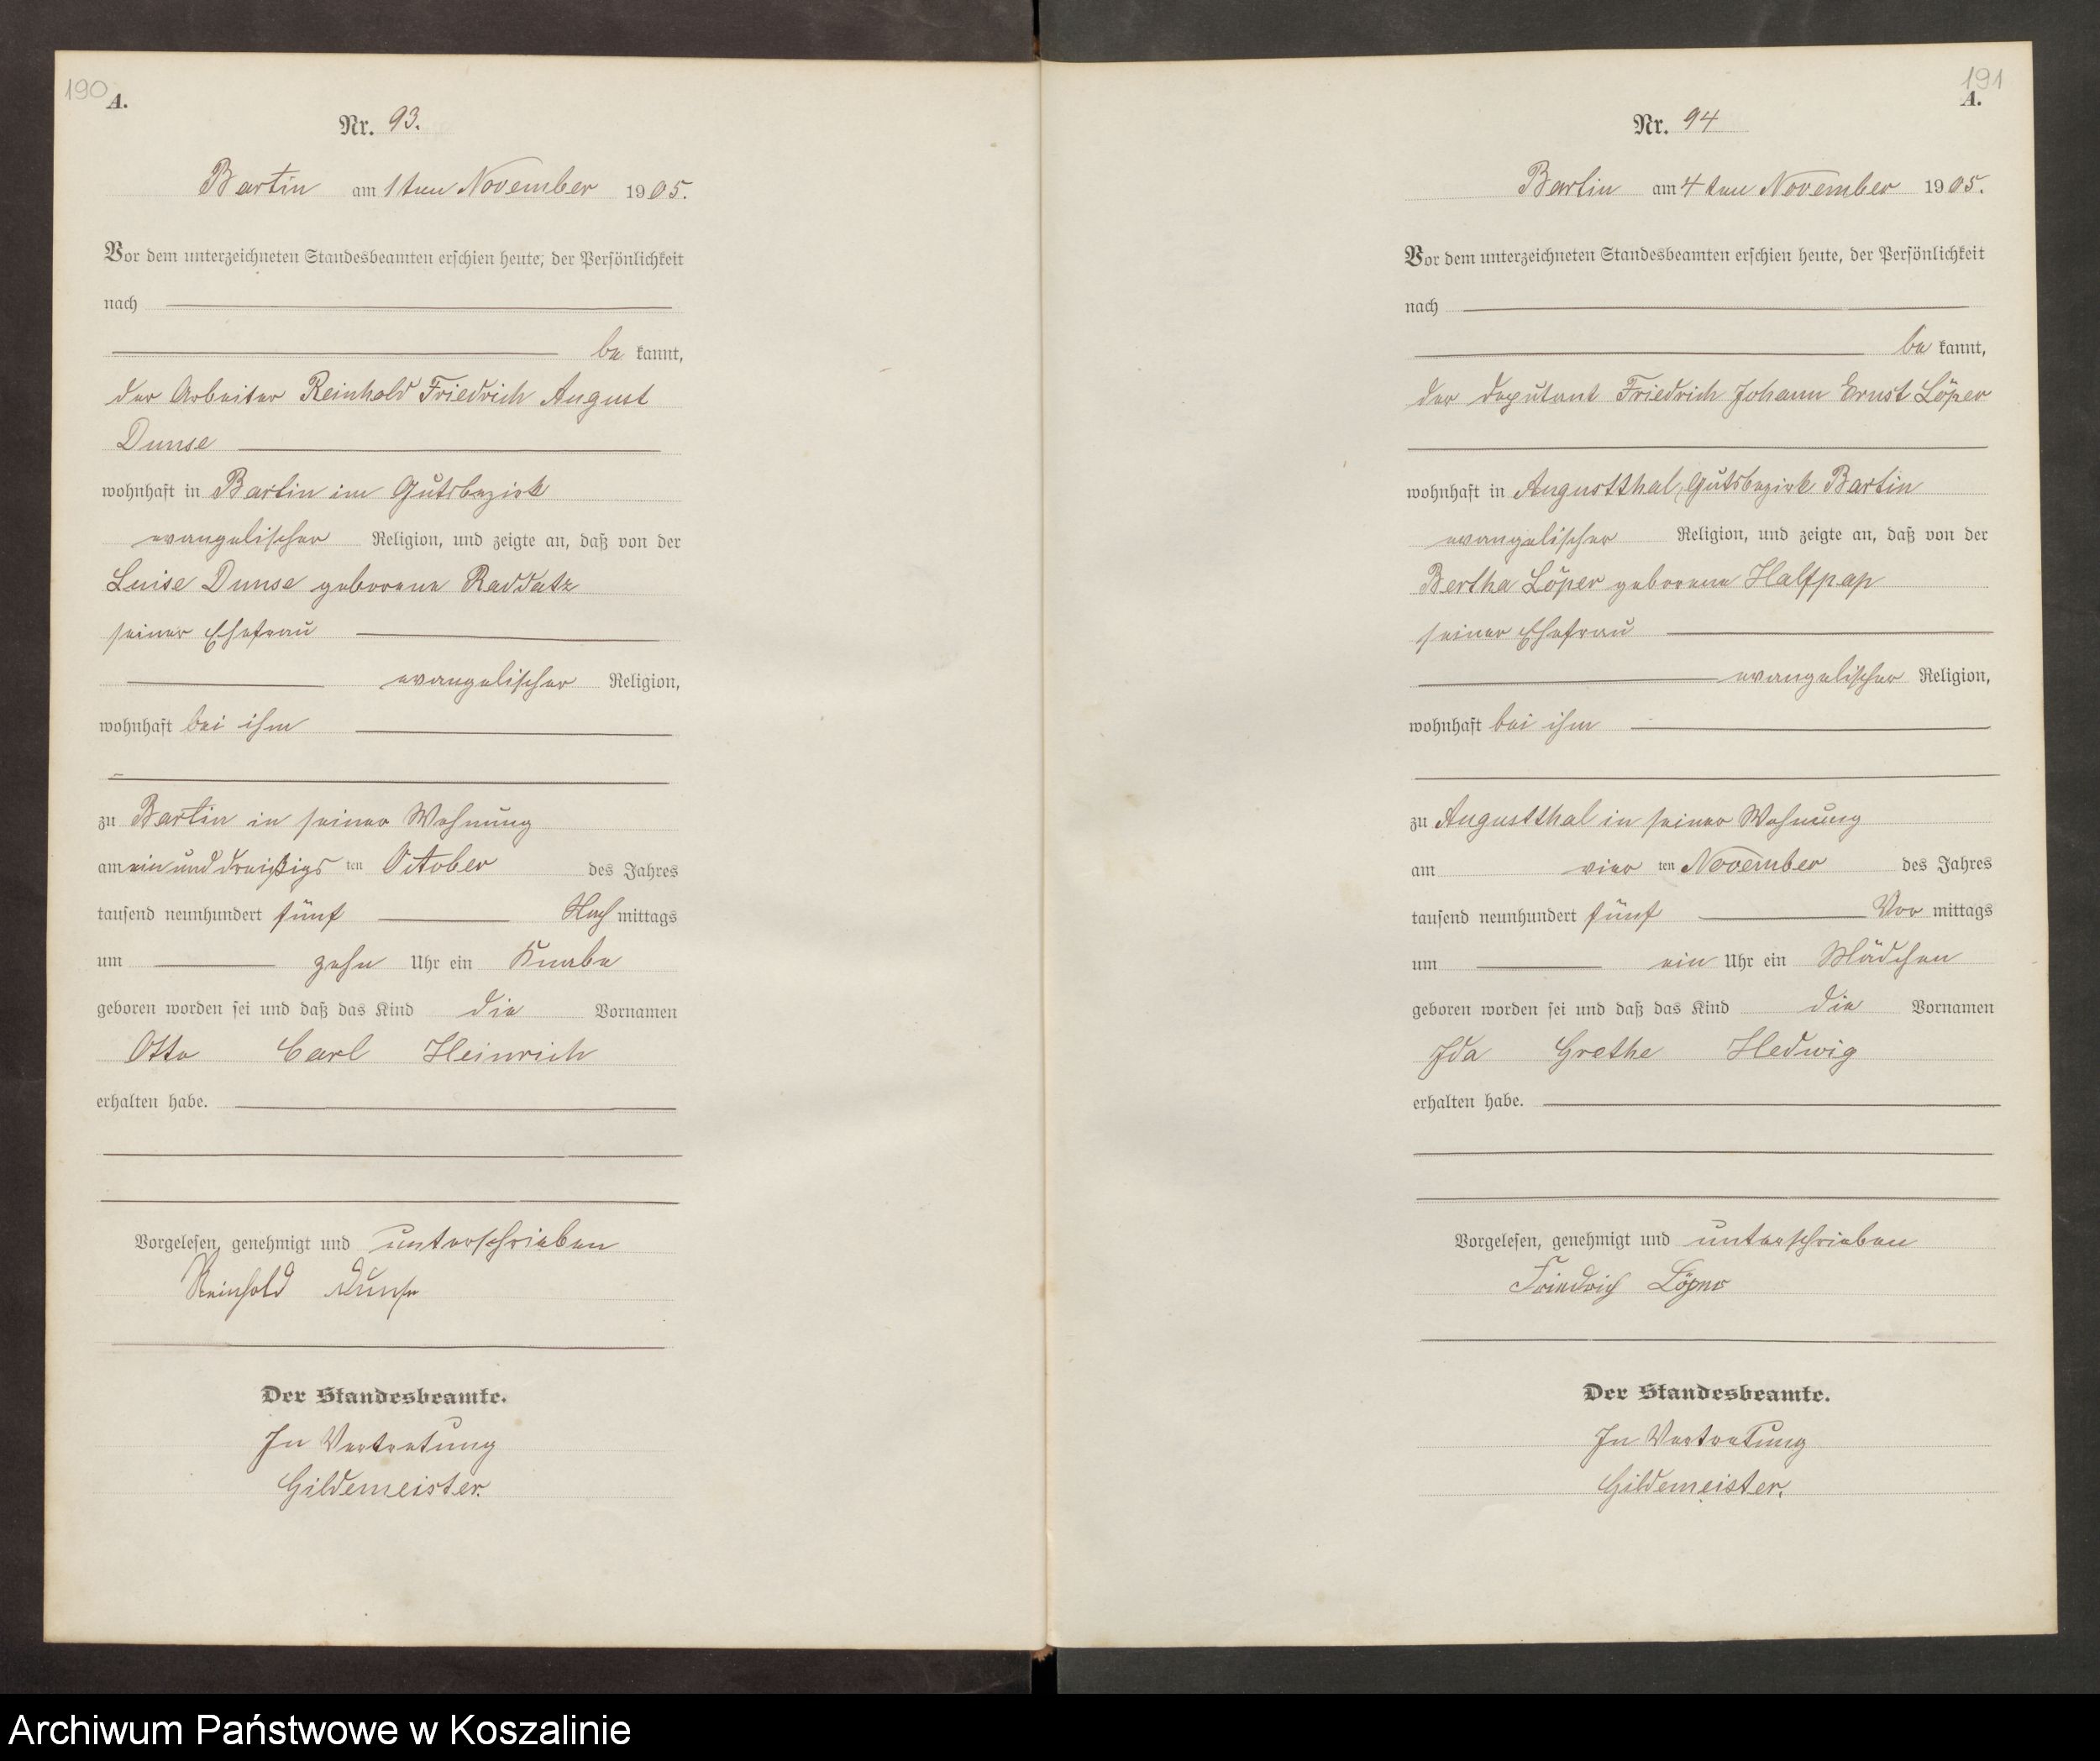 190
A.
Nr. 93.
Bartin am 1ten November 1905.
Vor dem unterzeichneten Standesbeamten erschien heute, der Persönlichkeit
nach
be kannt,
der Arbeiter Reinhold Friedrich August
Dunse
wohnhaft in Bartin im Gutsbezirk
evangelischer Religion, und zeigte an, daß von der
Luise Dunse geborene Raddatz
seiner Ehefrau
evangelischer Religion,
wohnhaft bei ihm
zu Bartin in seiner Wohnung
am ein und dreißigs ten October des Jahres
tausend neunhundert fünf Nach mittags
um zehn Uhr ein Knabe
geboren worden sei und daß das Kind die Vornamen
Otto Carl Heinrich
erhalten habe.
Vorgelesen, genehmigt und unterschrieben
Reinhold Dunse
Der Standesbeamte.
In Vertretung
Gildemeister.
191
A.
Nr. 94
Bartin am 4ten November 1905.
Vor dem unterzeichneten Standesbeamten erschien heute, der Persönlichkeit
nach
be kannt,
der Deputant Friedrich Johann Ernst Löper
wohnhaft in Augustthal, Gutsbezirk Bartin
evangelischer Religion, und zeigte an, daß von der
Bertha Löper geborene Halfpap
seiner Ehefrau
evangelischer Religion,
wohnhaft bei ihm
zu Augustthal in seiner Wohnung
am vier ten November des Jahres
tausend neunhundert fünf Vor mittags
um ein Uhr ein Mädchen
geboren worden sei und daß das Kind die Vornamen
Ida Grethe Hedwig
erhalten habe.
Vorgelesen, genehmigt und unterschrieben
Friedrich Löper
Der Standesbeamte.
In Vertretung
Gildemeister.
Archiwum Państwowe w Koszalinie